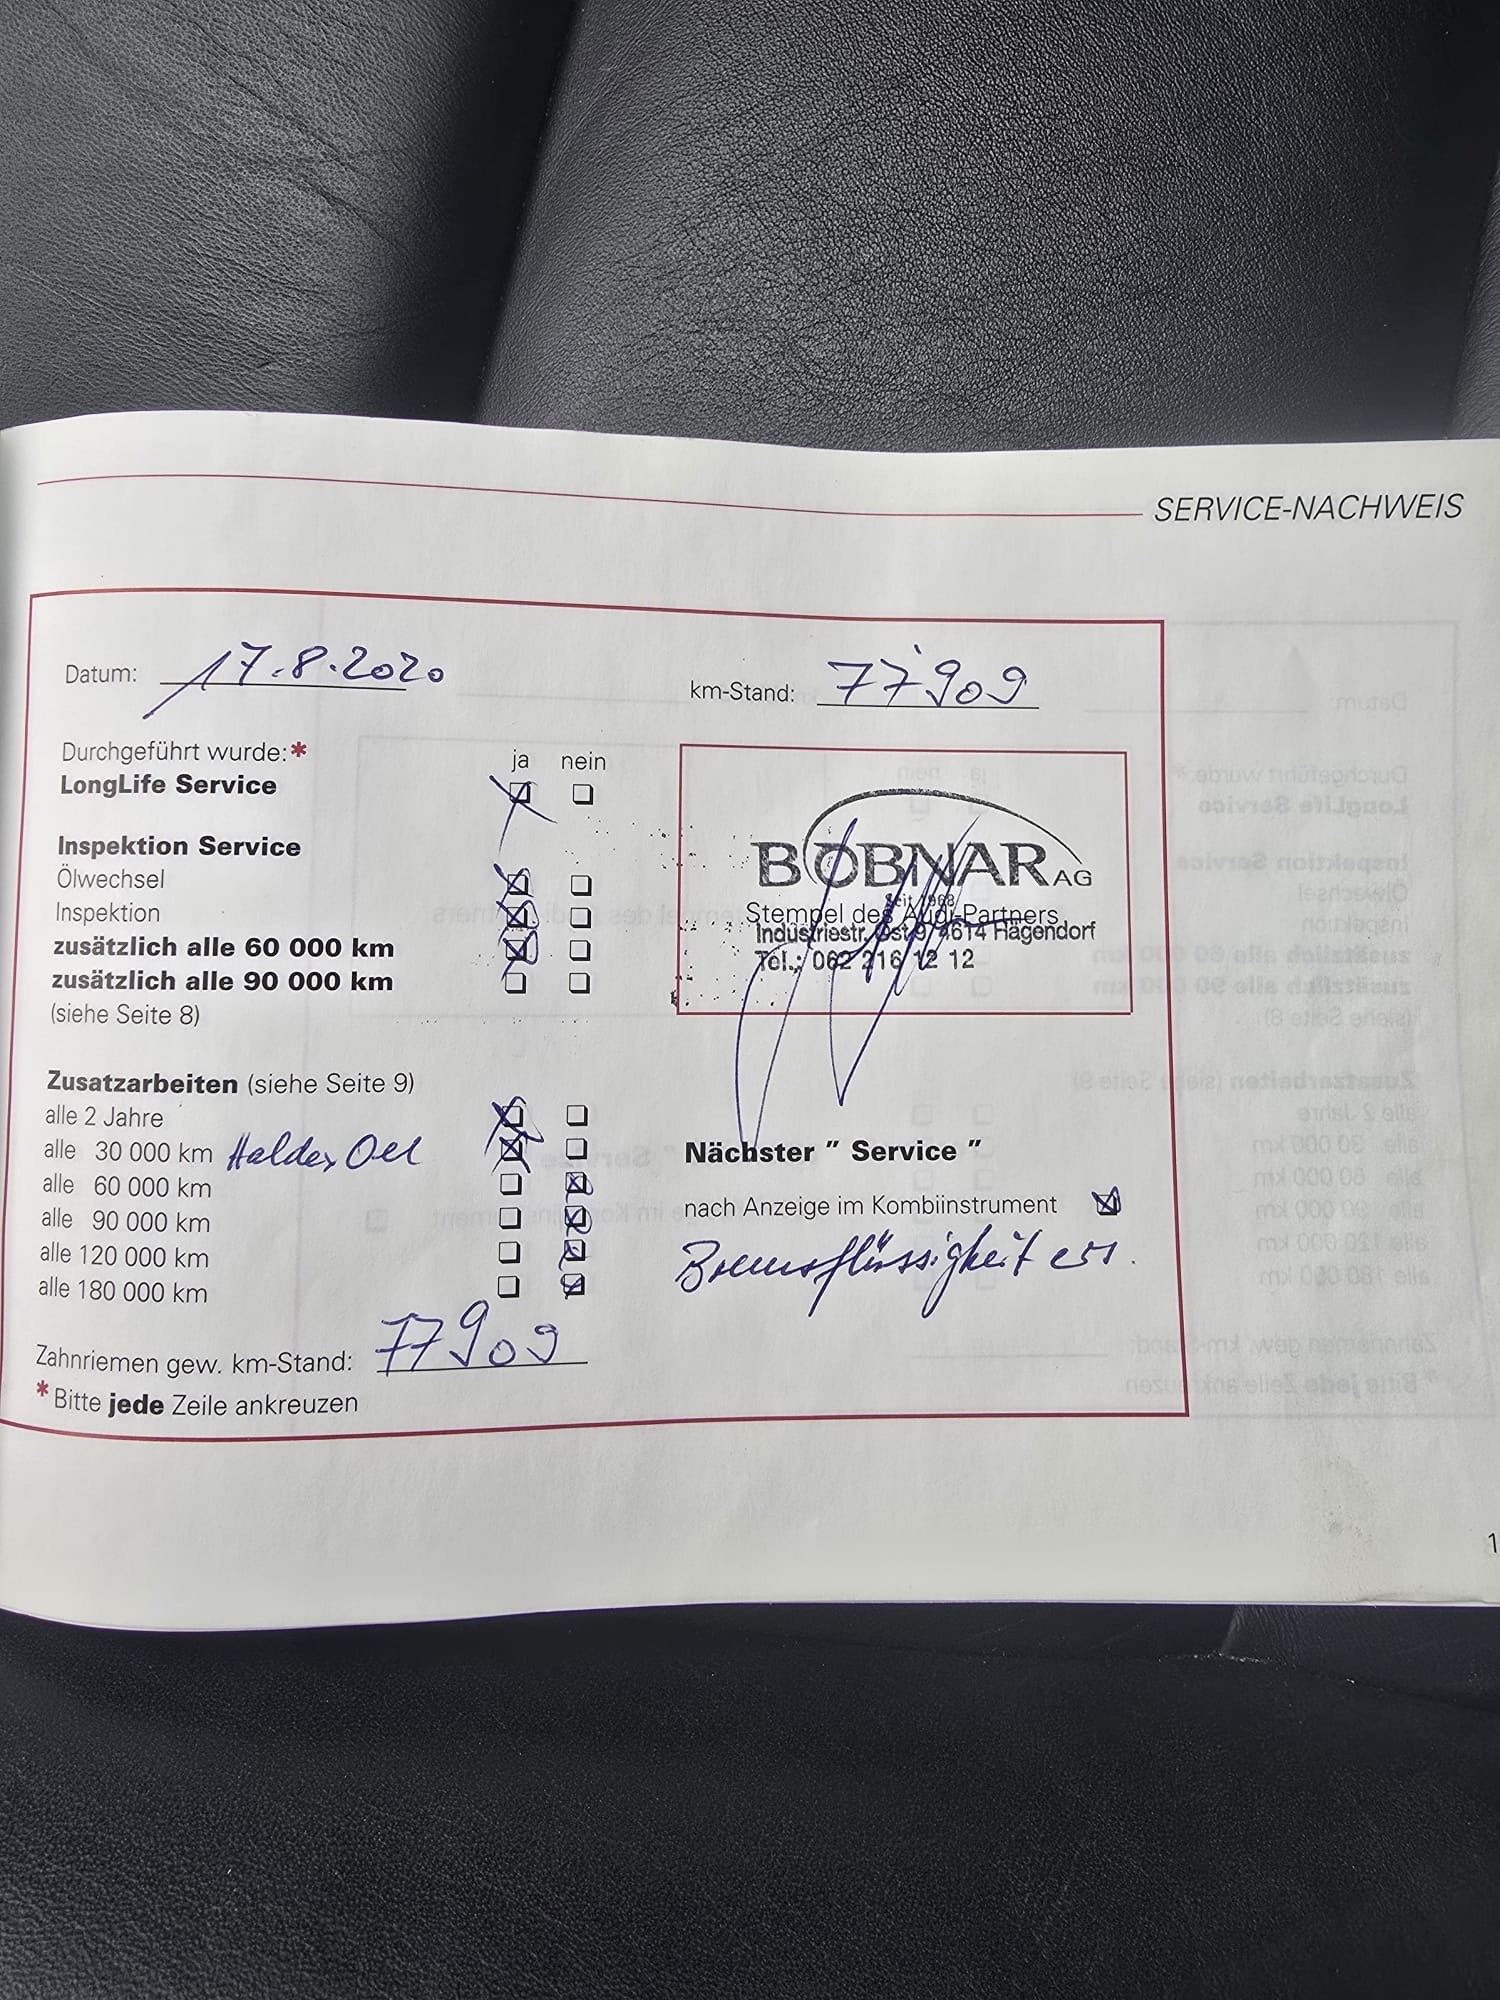 SERVICE-NACHWEIS
Datum: 17.8.2020
km-Stand: 77'909
Durchgeführt wurde:* ja nein
LongLife Service
Inspektion Service
Ölwechsel
Inspektion
zusätzlich alle 60 000 km
zusätzlich alle 90 000 km
(siehe Seite 8)
BOBNAR AG
Seit 1968
Stempel des Audi-Partners
Industriestr. Ost 9, 4614 Hägendorf
Tel.: 062 216 12 12
Zusatzarbeiten (siehe Seite 9)
alle 2 Jahre
alle 30 000 km Haldex Oel
alle 60 000 km
alle 90 000 km
alle 120 000 km
alle 180 000 km
Nächster " Service "
nach Anzeige im Kombiinstrument
Bremsflüssigkeit ers.
Zahnriemen gew. km-Stand: 77909
*Bitte jede Zeile ankreuzen
1